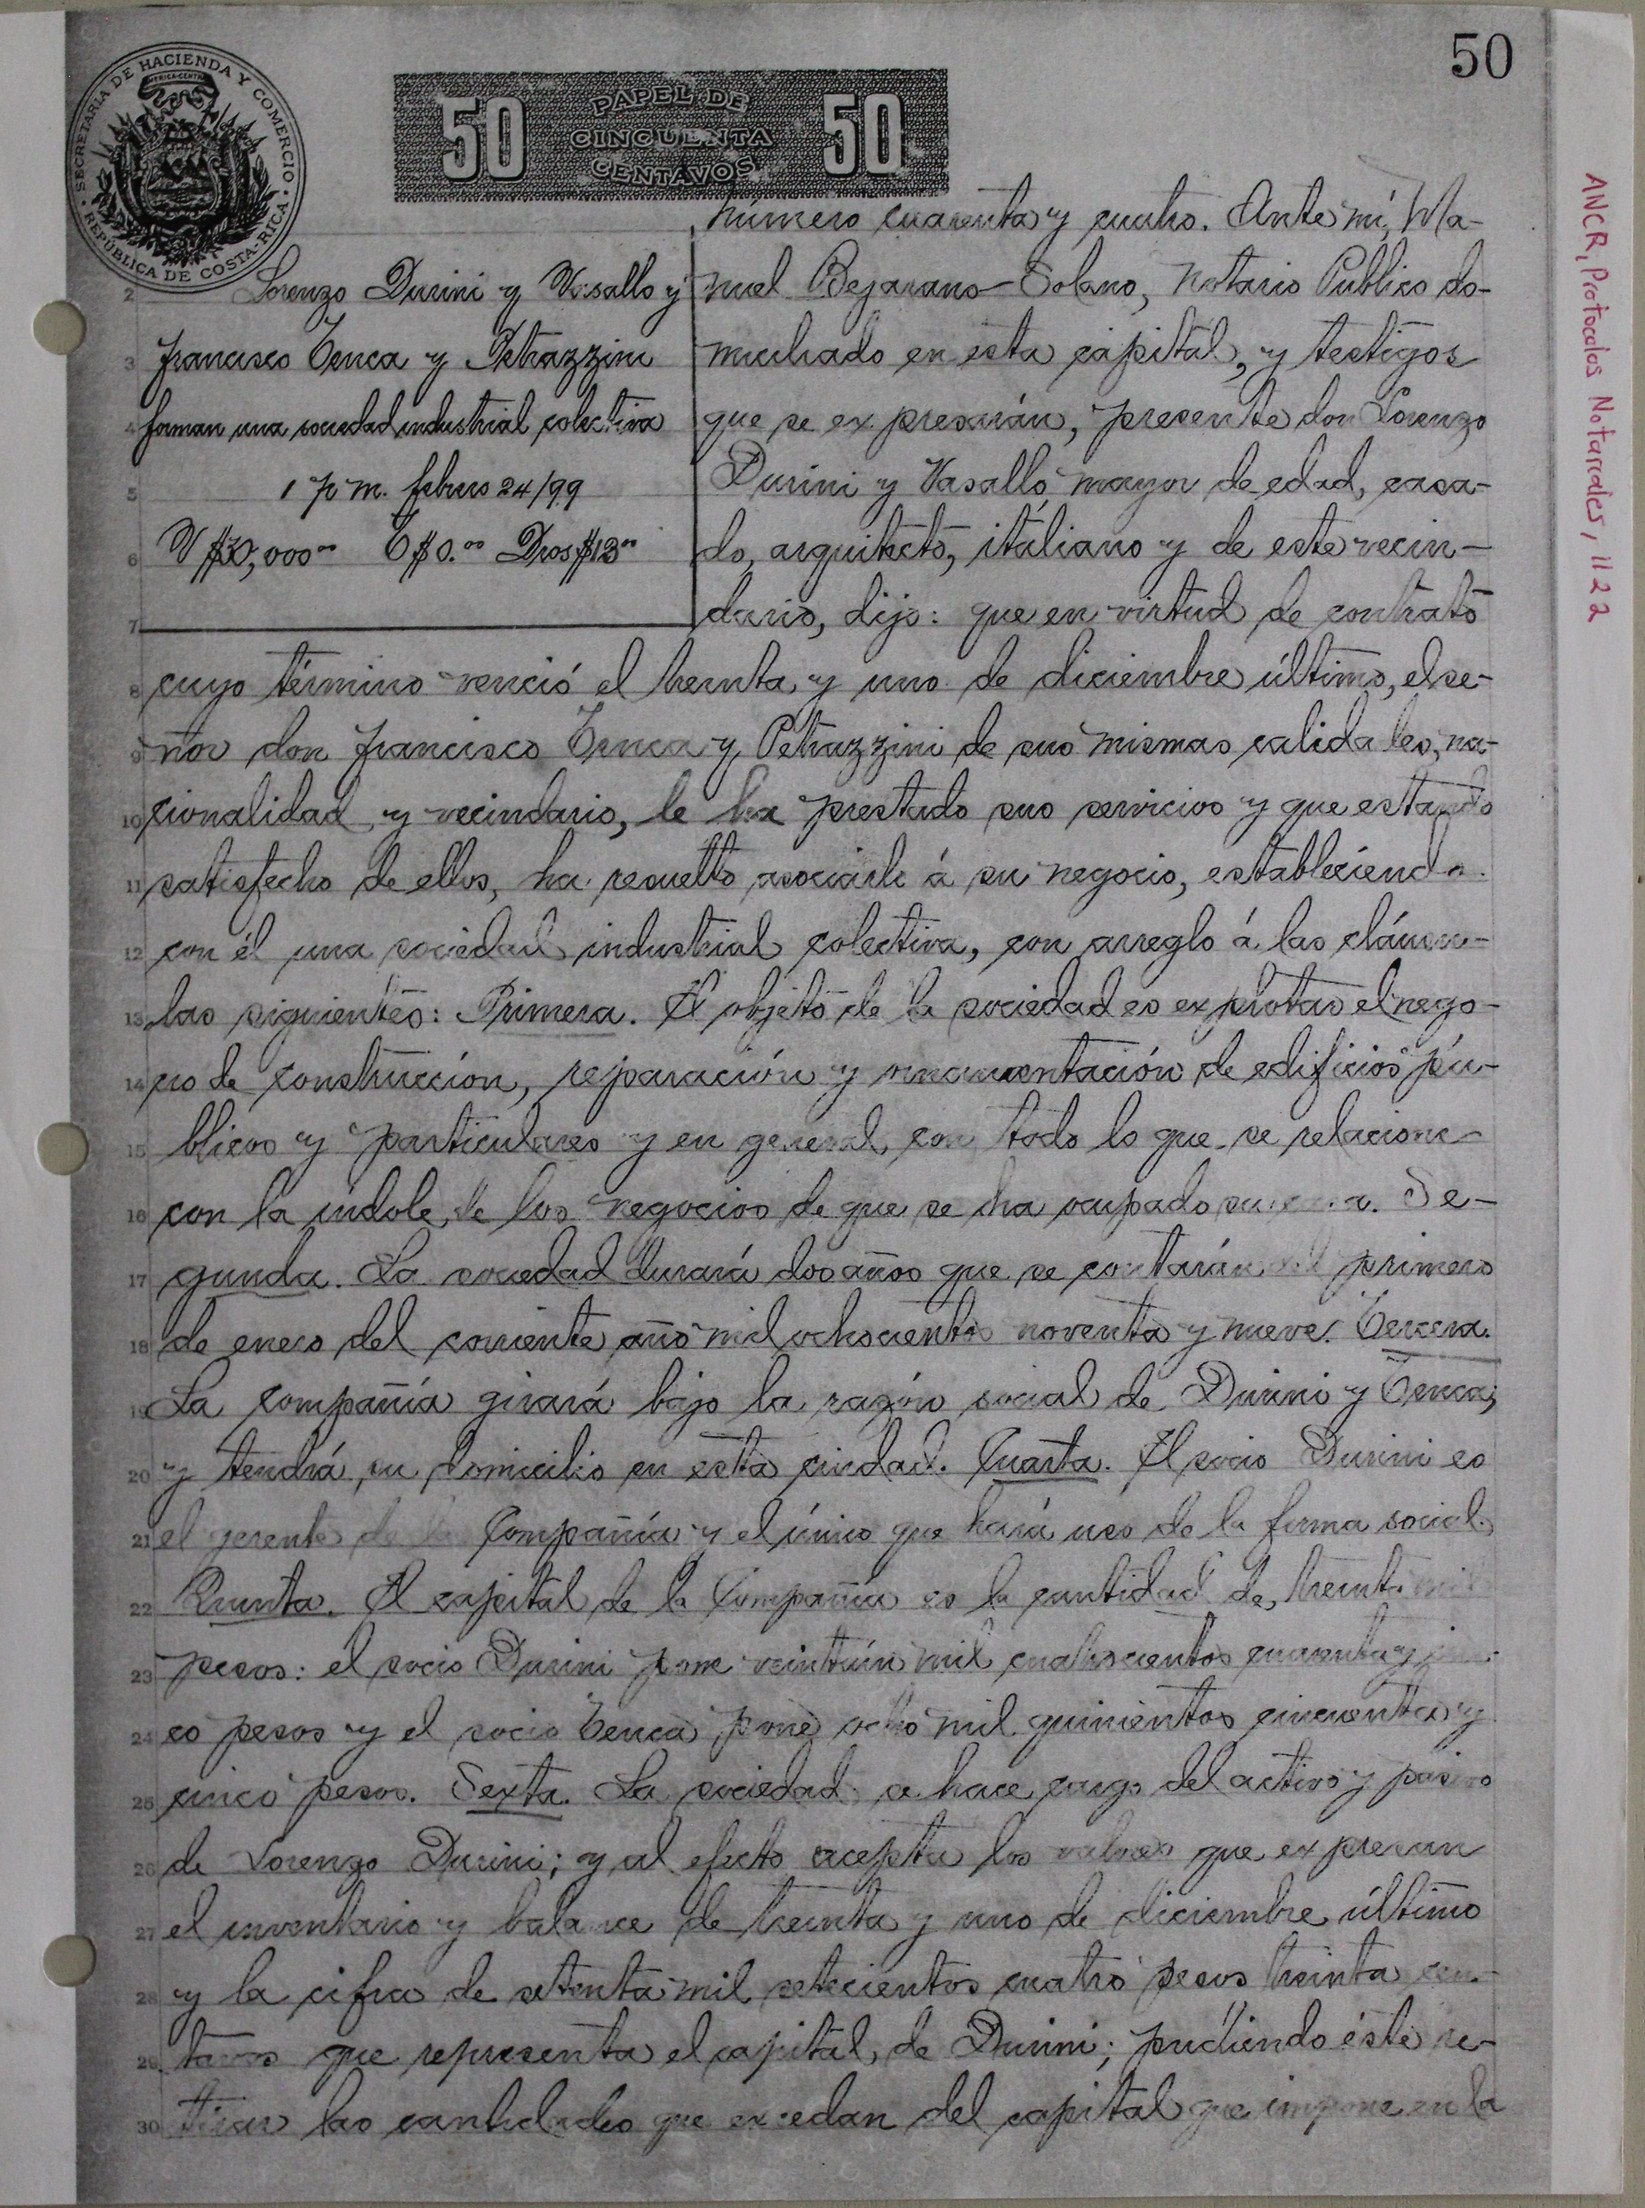 50
SECRETARIA DE HACIENDA Y COMERCIO
REPÚBLICA DE COSTA-RICA
50 PAPEL DE CINCUENTA CENTAVOS 50
ANCR, Protocolos Notariales, 1122
Lorenzo Durini y Vasallo y
Francisco Tenca y Petrazzini
forman una sociedad industrial colectiva
1 p m. febrero 24/99
V $30,000 T $0.00 Dros $13
Número cuarenta y cuatro. Ante mí, Ma-
nuel Bejarano Solano, Notario Publico do-
miciliado en esta capital, y testigos
que se expresarán, presente don Lorenzo
Durini y Vasallo mayor de edad, casa-
do, arquitecto, italiano y de este vecin-
dario, dijo: que en virtud de contrato
cuyo término venció el treinta y uno de diciembre último, el se-
ñor don Francisco Tenca y Petrazzini de sus mismas calidades, na-
cionalidad y vecindario, le ha prestado sus servicios y que estando
satisfecho de ellos, ha resuelto asociarle á su negocio, estableciendo
con él una sociedad industrial colectiva, con arreglo á las cláusu-
las siguientes: Primera. El objeto de la sociedad es explotar el nego-
cio de construcción, reparación y ornamentación de edificios pú-
blicos y particulares y en general, con todo lo que se relacione
con la índole de los negocios de que se ha ocupado Se-
gunda. La sociedad durará dos años que se contarán del primero
de enero del corriente año mil ochocientos noventa y nueve. Tercera.
La compañía girará bajo la razón social de Durini y Tenca,
y tendrá su domicilio en esta ciudad. Cuarta. El socio Durini es
el gerente de la Compañía y el único que hará uso de la firma social.
Quinta. El capital de la Compañía es la cantidad de treinta mil
pesos: el socio Durini pone veintiún mil cuatrocientos cuarenta y cin-
co pesos y el socio Tenca pone ocho mil quinientos cincuenta y
cinco pesos. Sexta. La sociedad se hace cargo del activo y pasivo
de Lorenzo Durini; y al efecto acepta los valores que expresan
el inventario y balance de treinta y uno de diciembre último
y la cifra de setenta mil setecientos cuatro pesos treinta cen-
tavos que representa el capital de Durini; pudiendo éste re-
tirar las cantidades que excedan del capital que impone en la
2
3
4
5
6
7
8
9
10
11
12
13
14
15
16
17
18
19
20
21
22
23
24
25
26
27
28
29
30